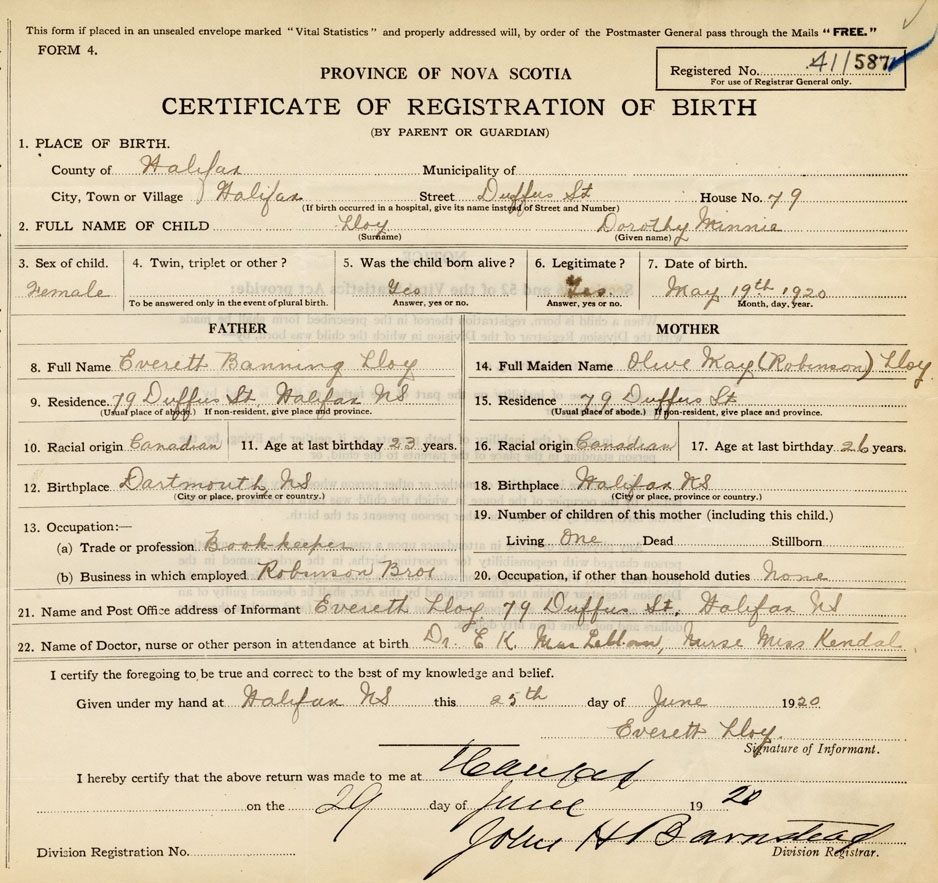 This form if placed in an unsealed envelope marked "Vital Statistics" and properly addressed will, by order of the Postmaster General pass through the Mails "FREE."
FORM 4.
Registered No. 41/587
For use of Registrar General only.
PROVINCE OF NOVA SCOTIA
CERTIFICATE OF REGISTRATION OF BIRTH
(BY PARENT OR GUARDIAN)
1. PLACE OF BIRTH.
County of Halifax Municipality of
City, Town or Village Halifax Street Duffus St House No. 79
(If birth occurred in a hospital, give its name instead of Street and Number)
2. FULL NAME OF CHILD Lloy Dorothy Minnie
(Surname) (Given name)
3. Sex of child. 4. Twin, triplet or other? 5. Was the child born alive? 6. Legitimate? 7. Date of birth.
Female Yes Yes. May 19th 1920
To be answered only in the event of plural birth. Answer, yes or no. Answer, yes or no. Month, day, year.
FATHER MOTHER
8. Full Name Everett Banning Lloy 14. Full Maiden Name Olive May (Robinson) Lloy
9. Residence. 79 Duffus St Halifax NS 15. Residence 79 Duffus St
(Usual place of abode.) If non-resident, give place and province. (Usual place of abode.) If non-resident, give place and province.
10. Racial origin Canadian 11. Age at last birthday 23 years. 16. Racial origin Canadian 17. Age at last birthday 26 years.
12. Birthplace Dartmouth NS 18. Birthplace Halifax NS
(City or place, province or country.) (City or place, province or country.)
13. Occupation:— 19. Number of children of this mother (including this child.)
(a) Trade or profession Book-keeper Living One Dead Stillborn
(b) Business in which employed Robinson Bros 20. Occupation, if other than household duties None
21. Name and Post Office address of Informant Everett Lloy 79 Duffus St. Halifax NS
22. Name of Doctor, nurse or other person in attendance at birth Dr. E K. Nurse Miss Kendal
I certify the foregoing to be true and correct to the best of my knowledge and belief.
Given under my hand at Halifax NS this 25th day of June 1920
Everett Lloy.
Signature of Informant.
I hereby certify that the above return was made to me at
on the 29 day of June 1920
John H Barnstead
Division Registration No. Division Registrar.